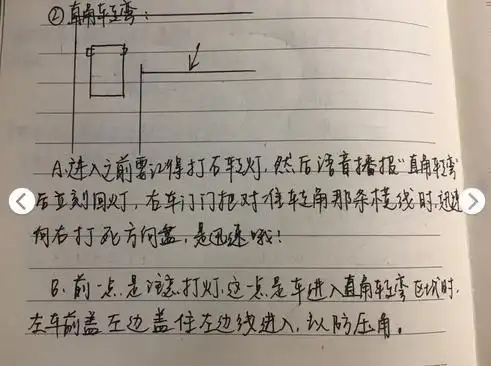 ②直角转弯：
A.进入之前要记得打右转灯，然后语音播报“直角转弯”
后立刻回灯，右车门门把对准直角那条横线时，迅速
向右打死方向盘，是迅速哦！
B.前一点是注意打灯，这一点是车进入直角转弯区域时，
左车前盖左边盖住左边线进入，以防压角。